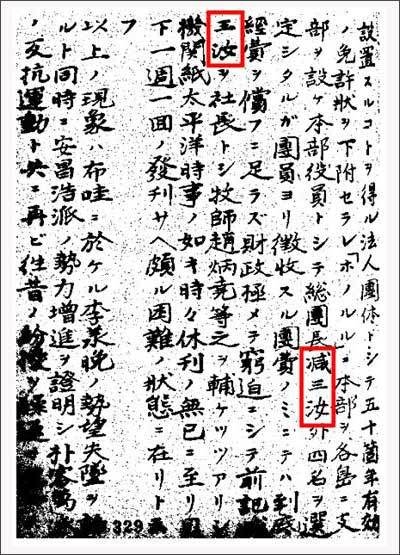 設置スルコトヲ得ル法人團体トシテ五十箇年有効
ノ免許狀ヲ下附セラレ「ホノルル」ニ本部ヲ各島ニ支
部ヲ設ケ本部役員トシテ總團長減三汝外四名ヲ選
定シタルガ團員ヨリ徴收スル團費ノミニテハ到底
經費ヲ償フニ足ラズ財政極メテ窮迫ニシテ前記
王汝ヲ社長トシ牧師趙炳堯等之ヲ輔ケツツアリシ
機関紙太平洋時事ノ如キ時々休刊ノ無已ニ至リ
下一週一面ノ發刊サヘ頗ル困難ノ狀態ニ在リト
フ
以上ノ現象ハ布哇ニ於ケル李承晩ノ勢望失墜ヲ
ルト同時ニ安昌浩派ノ勢力増進ヲ證明シ朴容萬
ノ反抗運動ト共ニ再ビ往昔ノ紛
329